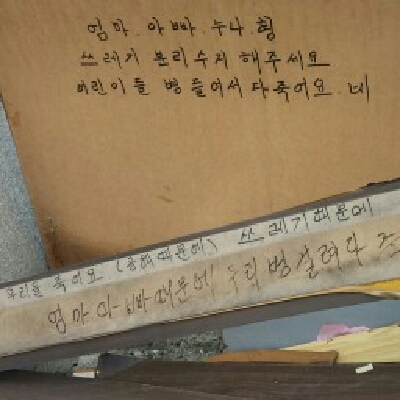 엄마. 아빠. 누나. 형
쓰레기 분리수지 해주세요
어린이들 병들어서 다죽어요. 네
우리들 죽어요 (공해때문에) 쓰레기때문에
엄마 아빠때문에 우리 병걸려 다